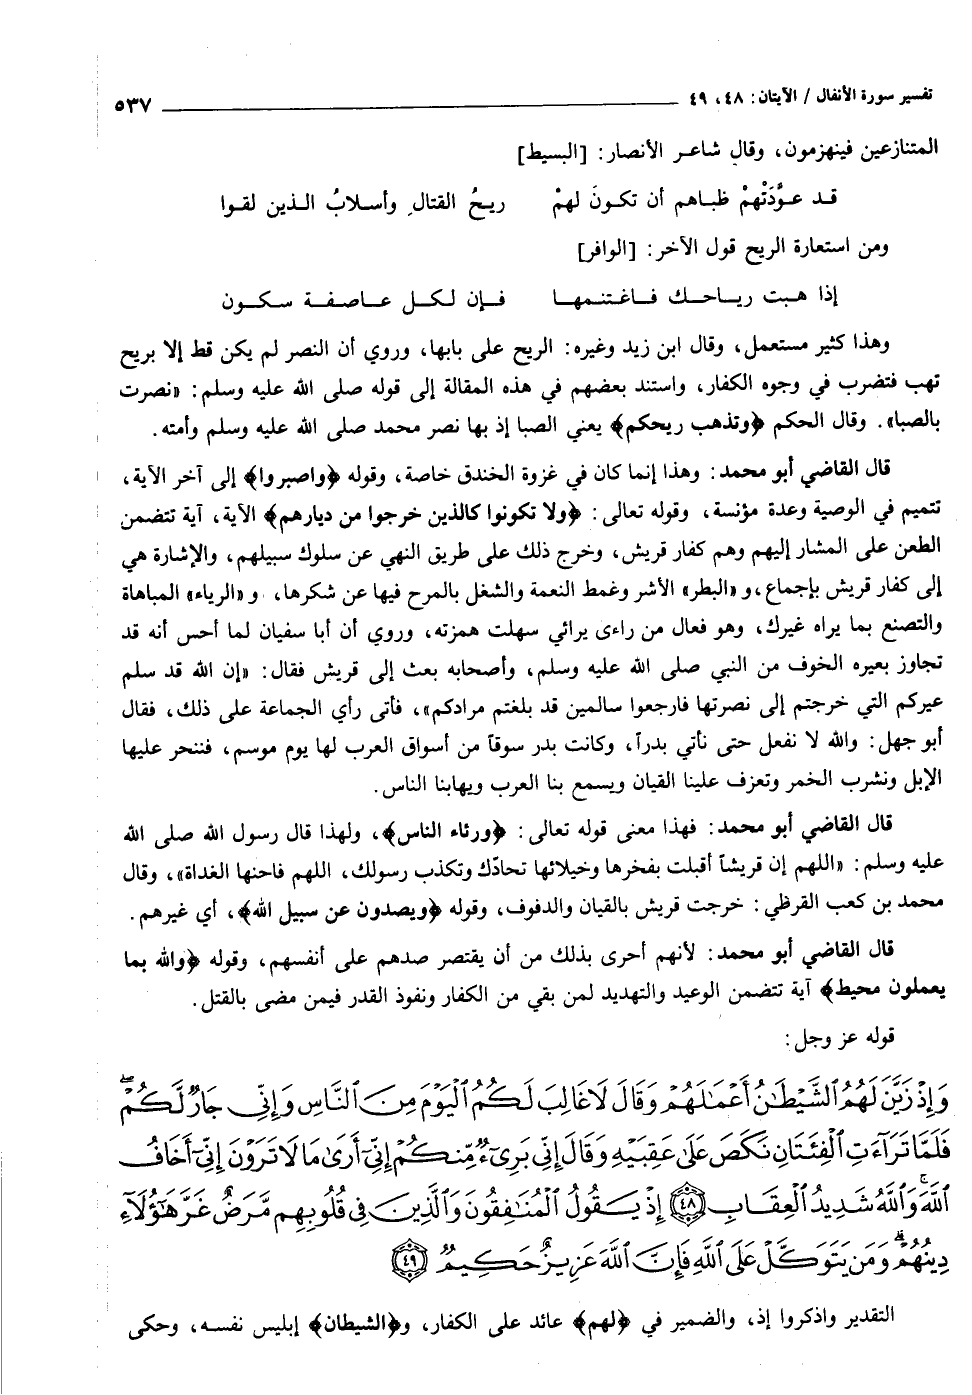 تفسير سورة الأنفال / الآيتان: ٤٨، ٤٩ ٥٣٧
المتنازعين فينهزمون، وقال شاعر الأنصار: [البسيط]
قد عوَّدَتْهمْ ظباهم أن تكونَ لهمْ ريحُ القتالِ وأسلابُ الذين لقوا
ومن استعارة الريح قول الآخر: [الوافر]
إذا هبت رياحك فاغتنمها فإن لكل عاصفة سكون
وهذا كثير مستعمل، وقال ابن زيد وغيره: الريح على بابها، وروي أن النصر لم يكن قط إلا بريح
تهب فتضرب في وجوه الكفار، واستند بعضهم في هذه المقالة إلى قوله صلى الله عليه وسلم: «نصرت
بالصبا». وقال الحكم ﴿وتذهب ريحكم﴾ يعني الصبا إذ بها نصر محمد صلى الله عليه وسلم وأمته.
قال القاضي أبو محمد: وهذا إنما كان في غزوة الخندق خاصة، وقوله ﴿واصبروا﴾ إلى آخر الآية،
تتميم في الوصية وعدة مؤنسة، وقوله تعالى: ﴿ولا تكونوا كالذين خرجوا من ديارهم﴾ الآية، آية تتضمن
الطعن على المشار إليهم وهم كفار قريش، وخرج ذلك على طريق النهي عن سلوك سبيلهم، والإشارة هي
إلى كفار قريش بإجماع،و «البطر» الأشر وغمط النعمة والشغل بالمرح فيها عن شكرها، و «الرياء» المباهاة
والتصنع بما يراه غيرك، وهو فعال من راءى يرائي سهلت همزته، وروي أن أبا سفيان لما أحس أنه قد
تجاوز بعيره الخوف من النبي صلى الله عليه وسلم، وأصحابه بعث إلى قريش فقال: «إن الله قد سلم
عيركم التي خرجتم إلى نصرتها فارجعوا سالمين قد بلغتم مرادكم»، فأتى رأي الجماعة على ذلك، فقال
أبو جهل: والله لا نفعل حتى نأتي بدراً، وكانت بدر سوقاً من أسواق العرب لها يوم موسم، فننحر عليها
الإبل ونشرب الخمر وتعزف علينا القيان ويسمع بنا العرب ويهابنا الناس.
قال القاضي أبو محمد: فهذا معنى قوله تعالى: ﴿ورئاء الناس﴾، ولهذا قال رسول الله صلى الله
عليه وسلم: «اللهم إن قريشاً أقبلت بفخرها وخيلائها تحادّك وتكذب رسولك، اللهم فاحنها الغداة»، وقال
محمد بن كعب القرظي: خرجت قريش بالقيان والدفوف، وقوله ﴿ويصدون عن سبيل الله﴾، أي غيرهم.
قال القاضي أبو محمد: لأنهم أحرى بذلك من أن يقتصر صدهم على أنفسهم، وقوله ﴿والله بما
يعملون محيط﴾ آية تتضمن الوعيد والتهديد لمن بقي من الكفار ونفوذ القدر فيمن مضى بالقتل.
قوله عز وجل:
وَإِذْ زَيَّنَ لَهُمُ ٱلشَّيْطَـٰنُ أَعْمَـٰلَهُمْ وَقَالَ لَا غَالِبَ لَكُمُ ٱلْيَوْمَ مِنَ ٱلنَّاسِ وَإِنِّي جَارٌ لَّكُمْ ۖ
فَلَمَّا تَرَآءَتِ ٱلْفِئَتَانِ نَكَصَ عَلَىٰ عَقِبَيْهِ وَقَالَ إِنِّي بَرِيٓءٌ مِّنكُمْ إِنِّيٓ أَرَىٰ مَا لَا تَرَوْنَ إِنِّيٓ أَخَافُ
ٱللَّهَ ۚ وَٱللَّهُ شَدِيدُ ٱلْعِقَابِ ﴿٤٨﴾ إِذْ يَقُولُ ٱلْمُنَـٰفِقُونَ وَٱلَّذِينَ فِي قُلُوبِهِم مَّرَضٌ غَرَّ هَـٰٓؤُلَآءِ
دِينُهُمْ ۗ وَمَن يَتَوَكَّلْ عَلَى ٱللَّهِ فَإِنَّ ٱللَّهَ عَزِيزٌ حَكِيمٌ ﴿٤٩﴾
التقدير واذكروا إذ، والضمير في ﴿لهم﴾ عائد على الكفار، و﴿الشيطان﴾ إبليس نفسه، وحكى